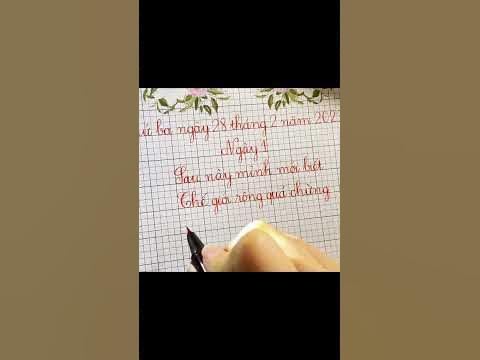 ứ ba ngày 28 tháng 2 năm 202
Ngày 1
Sau này mình mới biết
Thế giới rộng quá chừng